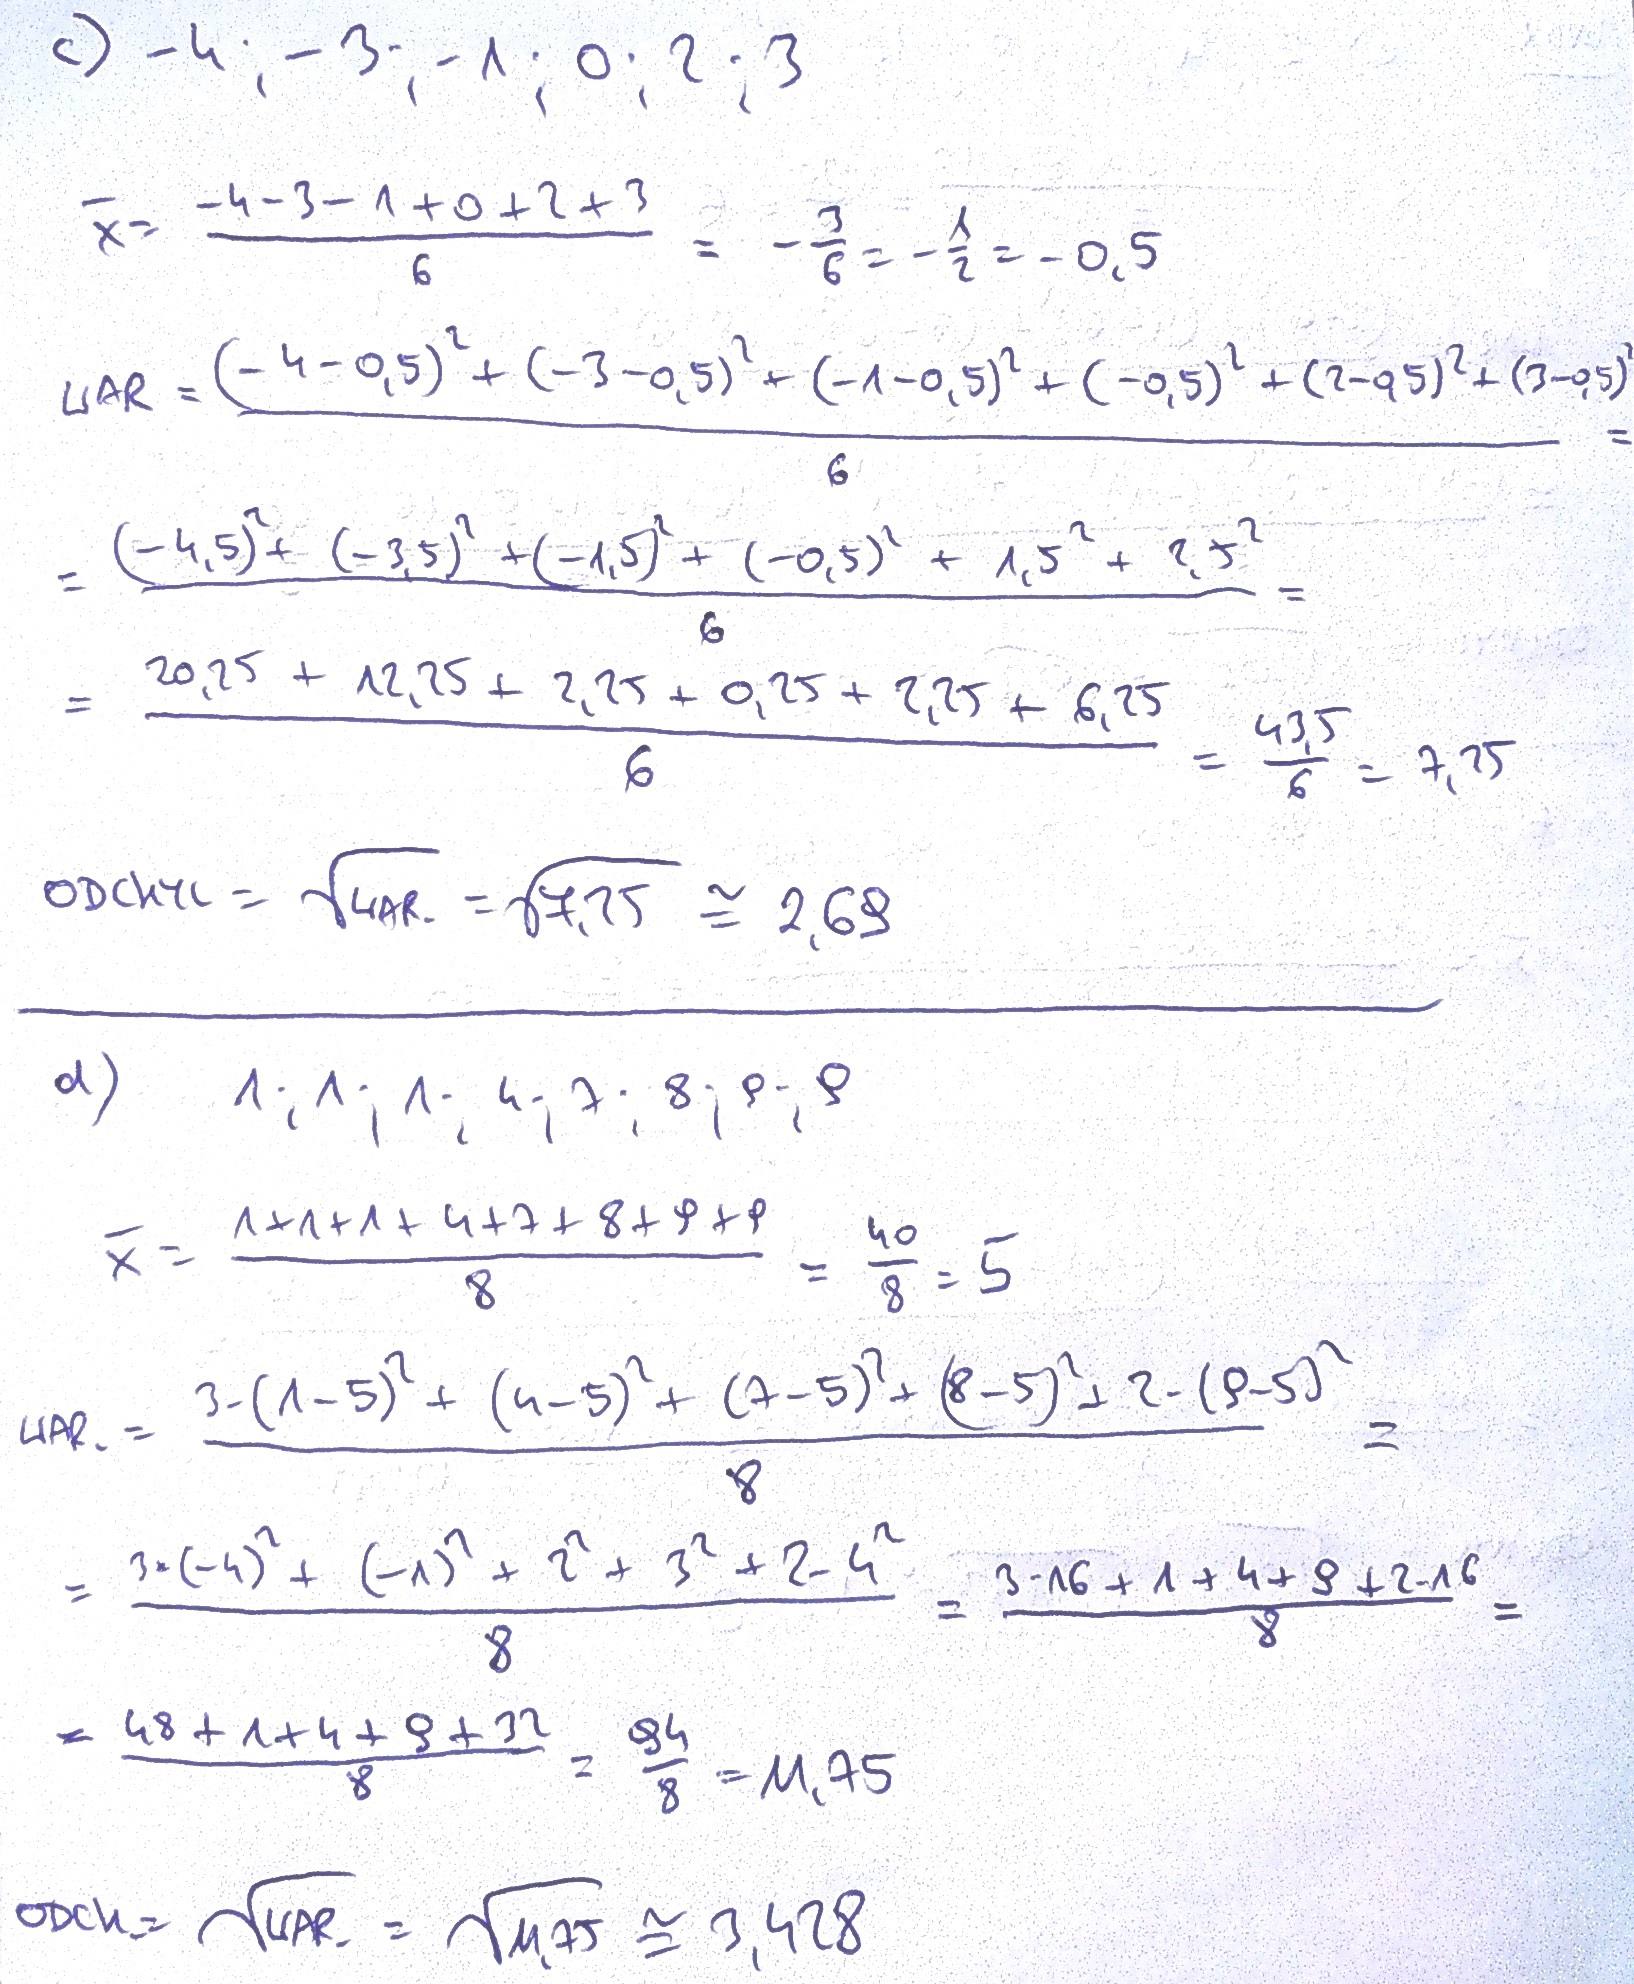 c) -4; -3; -1; 0; 2; 3
x̄ = (-4-3-1+0+2+3)/6 = -3/6 = -1/2 = -0,5
WAR = ((-4-0,5)² + (-3-0,5)² + (-1-0,5)² + (-0,5)² + (2-0,5)² + (3-0,5)²)/6 =
= ((-4,5)² + (-3,5)² + (-1,5)² + (-0,5)² + 1,5² + 2,5²)/6 =
= (20,25 + 12,25 + 2,25 + 0,25 + 2,25 + 6,25)/6 = 43,5/6 = 7,25
ODCHYL = √WAR. = √7,25 ≅ 2,69
d) 1; 1; 1; 4; 7; 8; 9; 9
x̄ = (1+1+1+4+7+8+9+9)/8 = 40/8 = 5
WAR. = (3·(1-5)² + (4-5)² + (7-5)² + (8-5)² + 2·(9-5)²)/8 =
= (3·(-4)² + (-1)² + 2² + 3² + 2·4²)/8 = (3·16 + 1 + 4 + 9 + 2·16)/8 =
= (48 + 1 + 4 + 9 + 32)/8 = 94/8 = 11,75
ODCH. = √WAR. = √11,75 ≅ 3,428